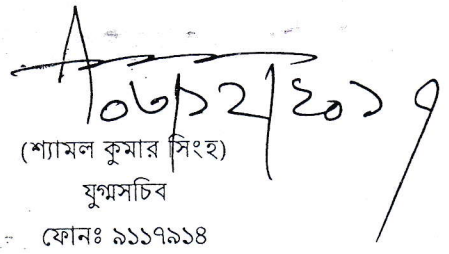 ০৬/১২/২০১৭
(শ্যামল কুমার সিংহ)
যুগ্মসচিব
ফোনঃ ৯১১৭৯১৪